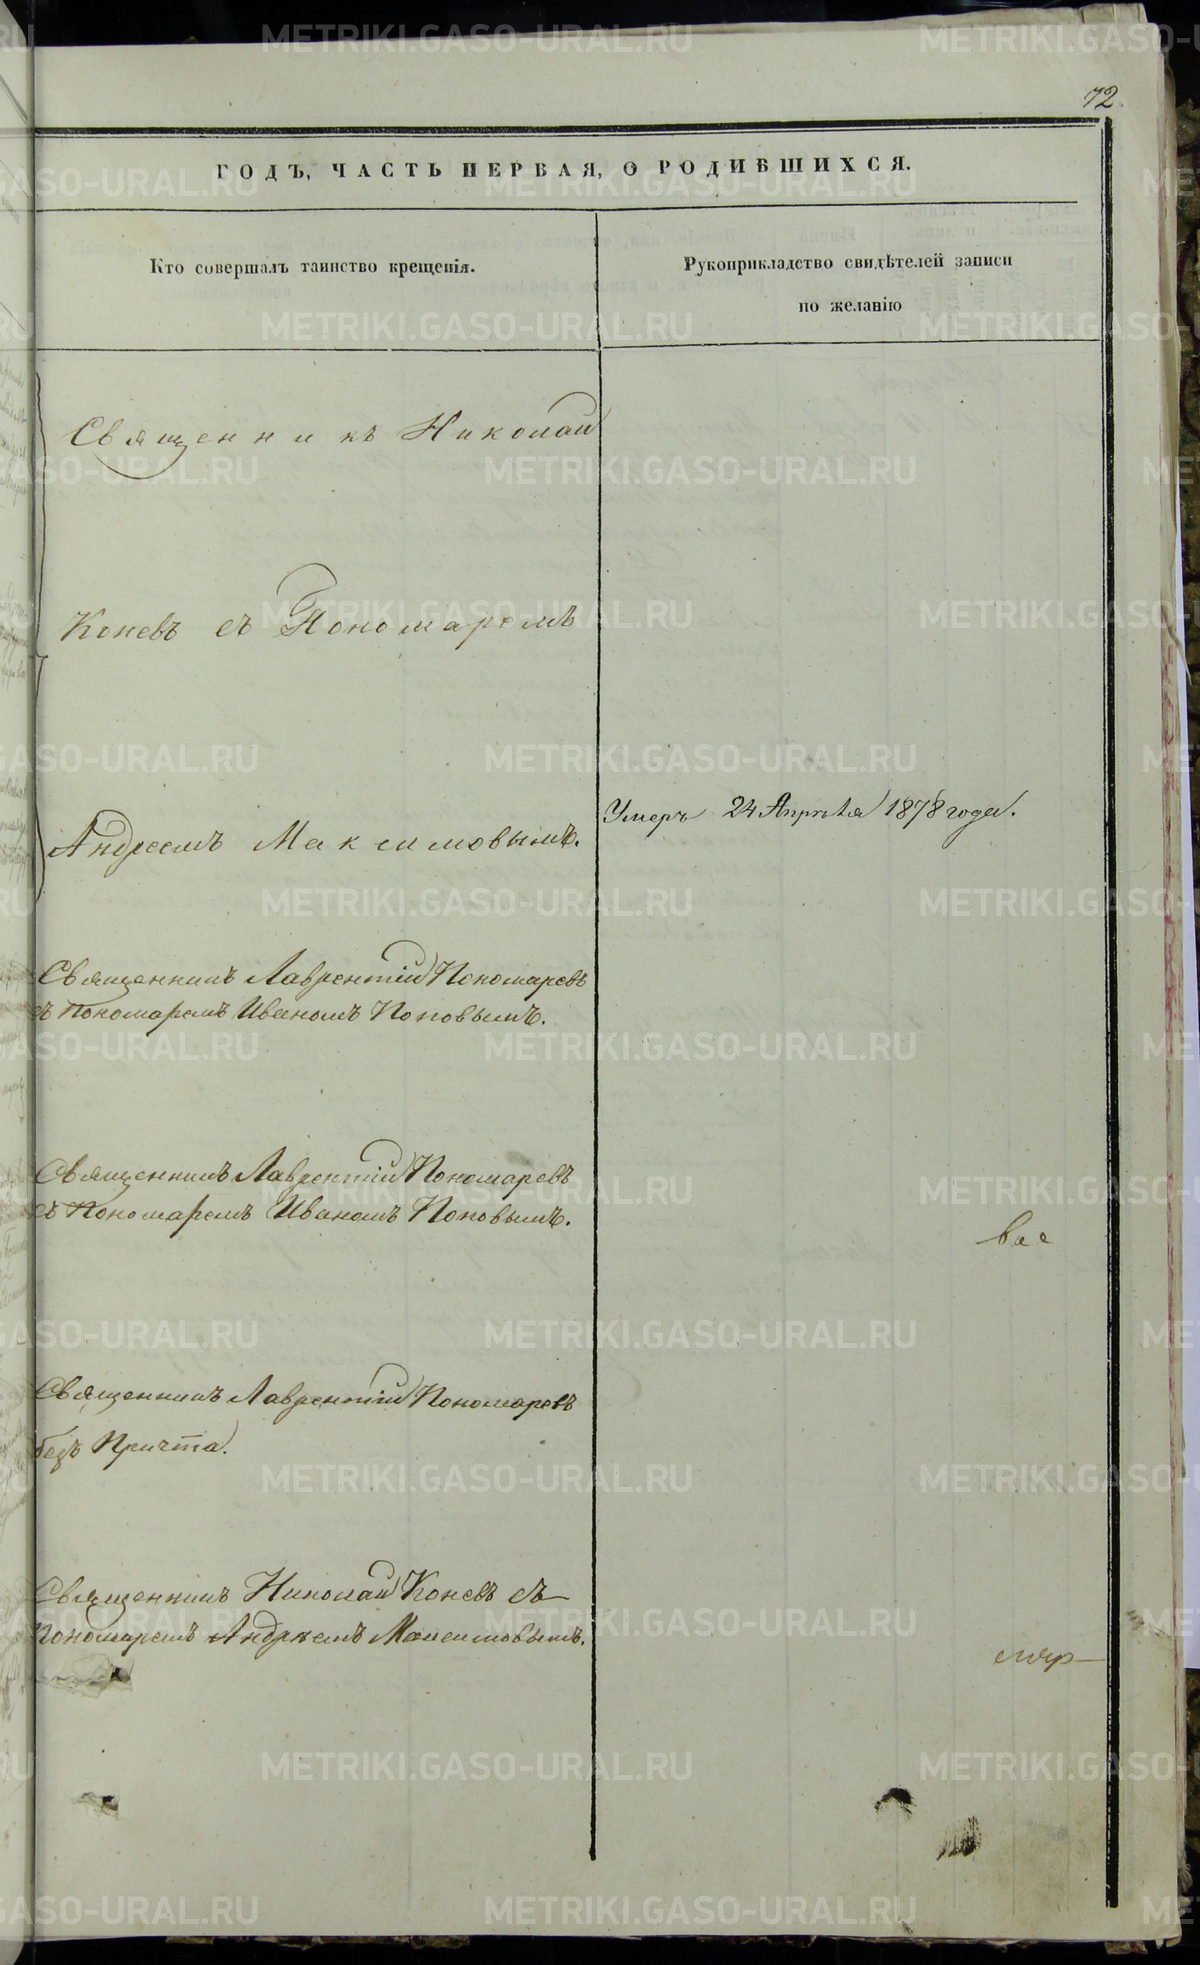 72
ГОДЪ, ЧАСТЬ ПЕРВАЯ, О РОДИВШИХСЯ.
Кто совершалъ таинство крещенія.
Рукоприкладство свидѣтелей записи
по желанію
Священникъ Николай
Коневъ съ Пономаремъ
Умеръ 24 Апрѣля 1878 года.
Андреемъ Максимовымъ.
Священникъ Лаврентій Пономаревъ
съ Пономаремъ Иваномъ Поповымъ.
Священникъ Лаврентій Пономаревъ
съ Пономаремъ Иваномъ Поповымъ.
Священникъ Лаврентій Пономаревъ
безъ Причта.
Священникъ Николай Коневъ съ
Пономаремъ Андреемъ Максимовымъ.
METRIKI.GASO-URAL.RU